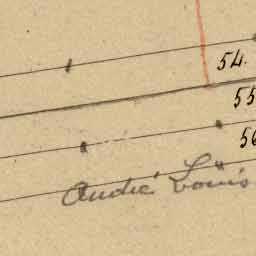 54.
55
56
André Louis